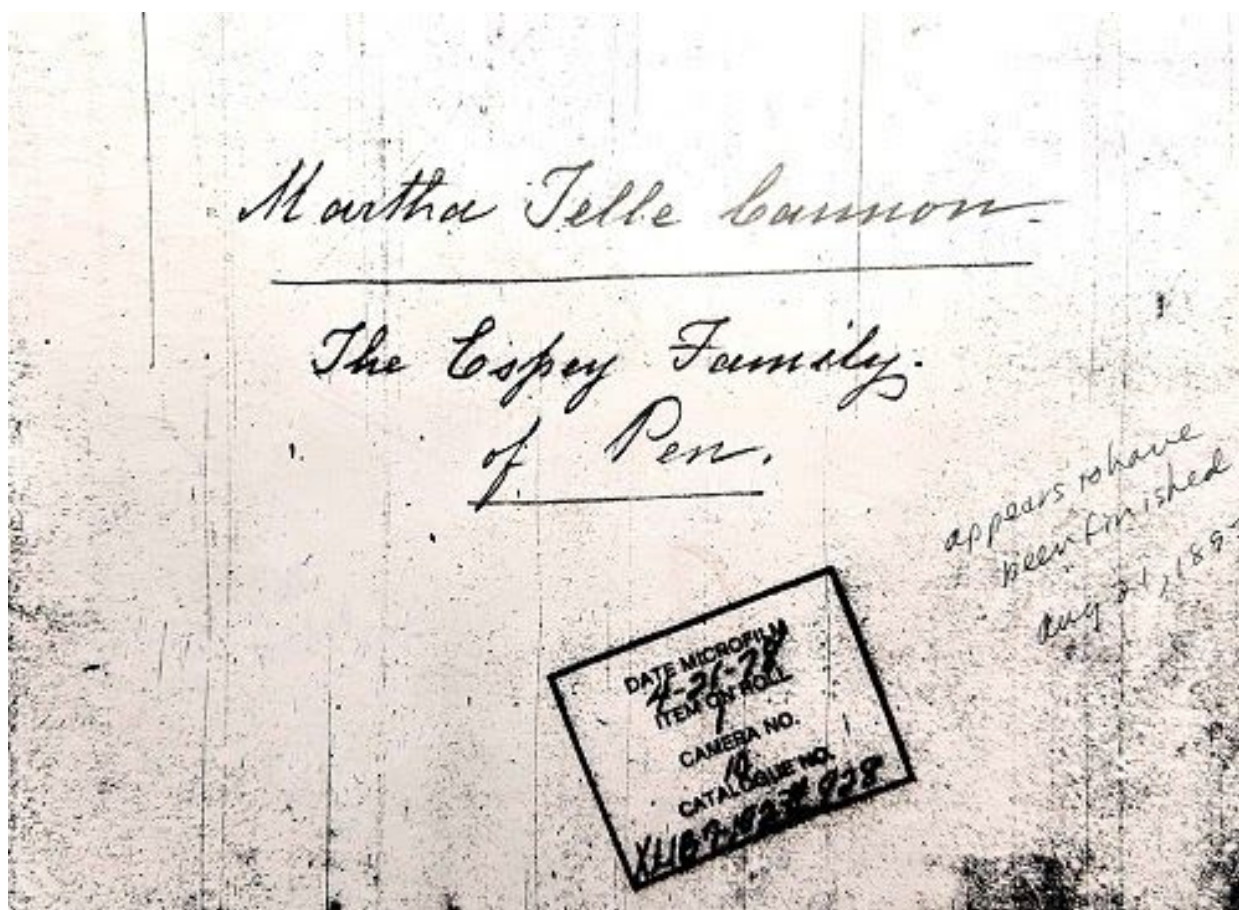 Martha Telle Cannon.
The Espey Family.
of Pen.
appears to have
been finished
Aug 21, 189
DATE MICROFILM
4-21-78
ITEM ON ROLL
1
CAMERA NO.
CATALOGUE NO.